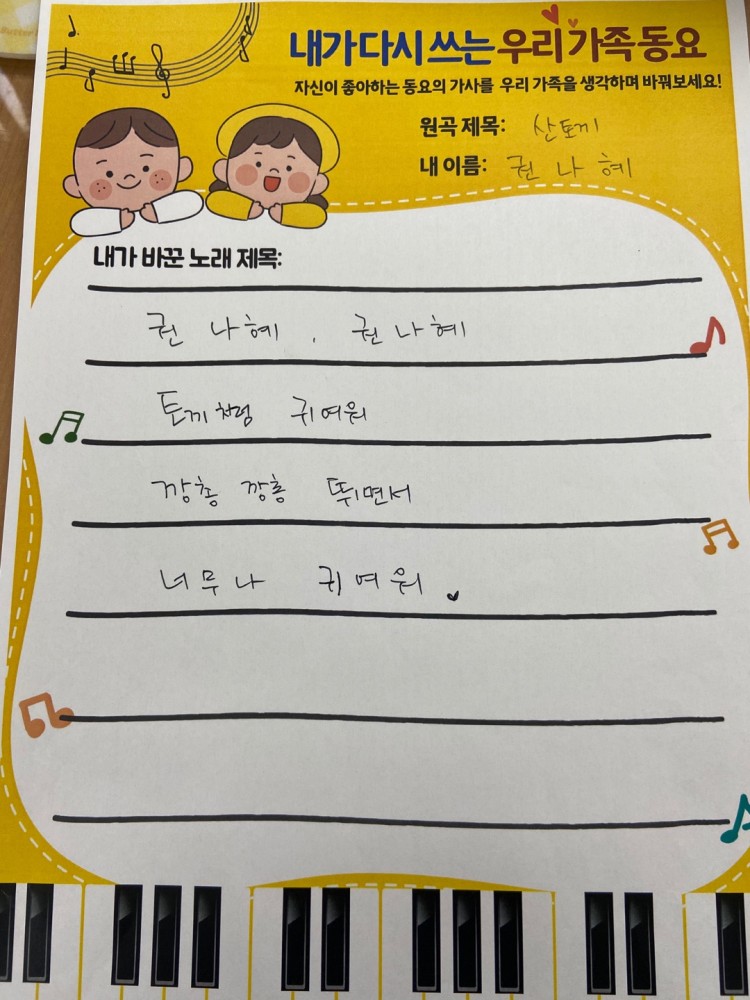 내가 다시 쓰는 우리 가족 동요
자신이 좋아하는 동요의 가사를 우리 가족을 생각하며 바꿔보세요!
원곡 제목: 산토끼
내 이름: 권나혜
내가 바꾼 노래 제목:
권나혜, 권나혜
토끼처럼 귀여워
깡총 깡총 뛰면서
너무나 귀여워